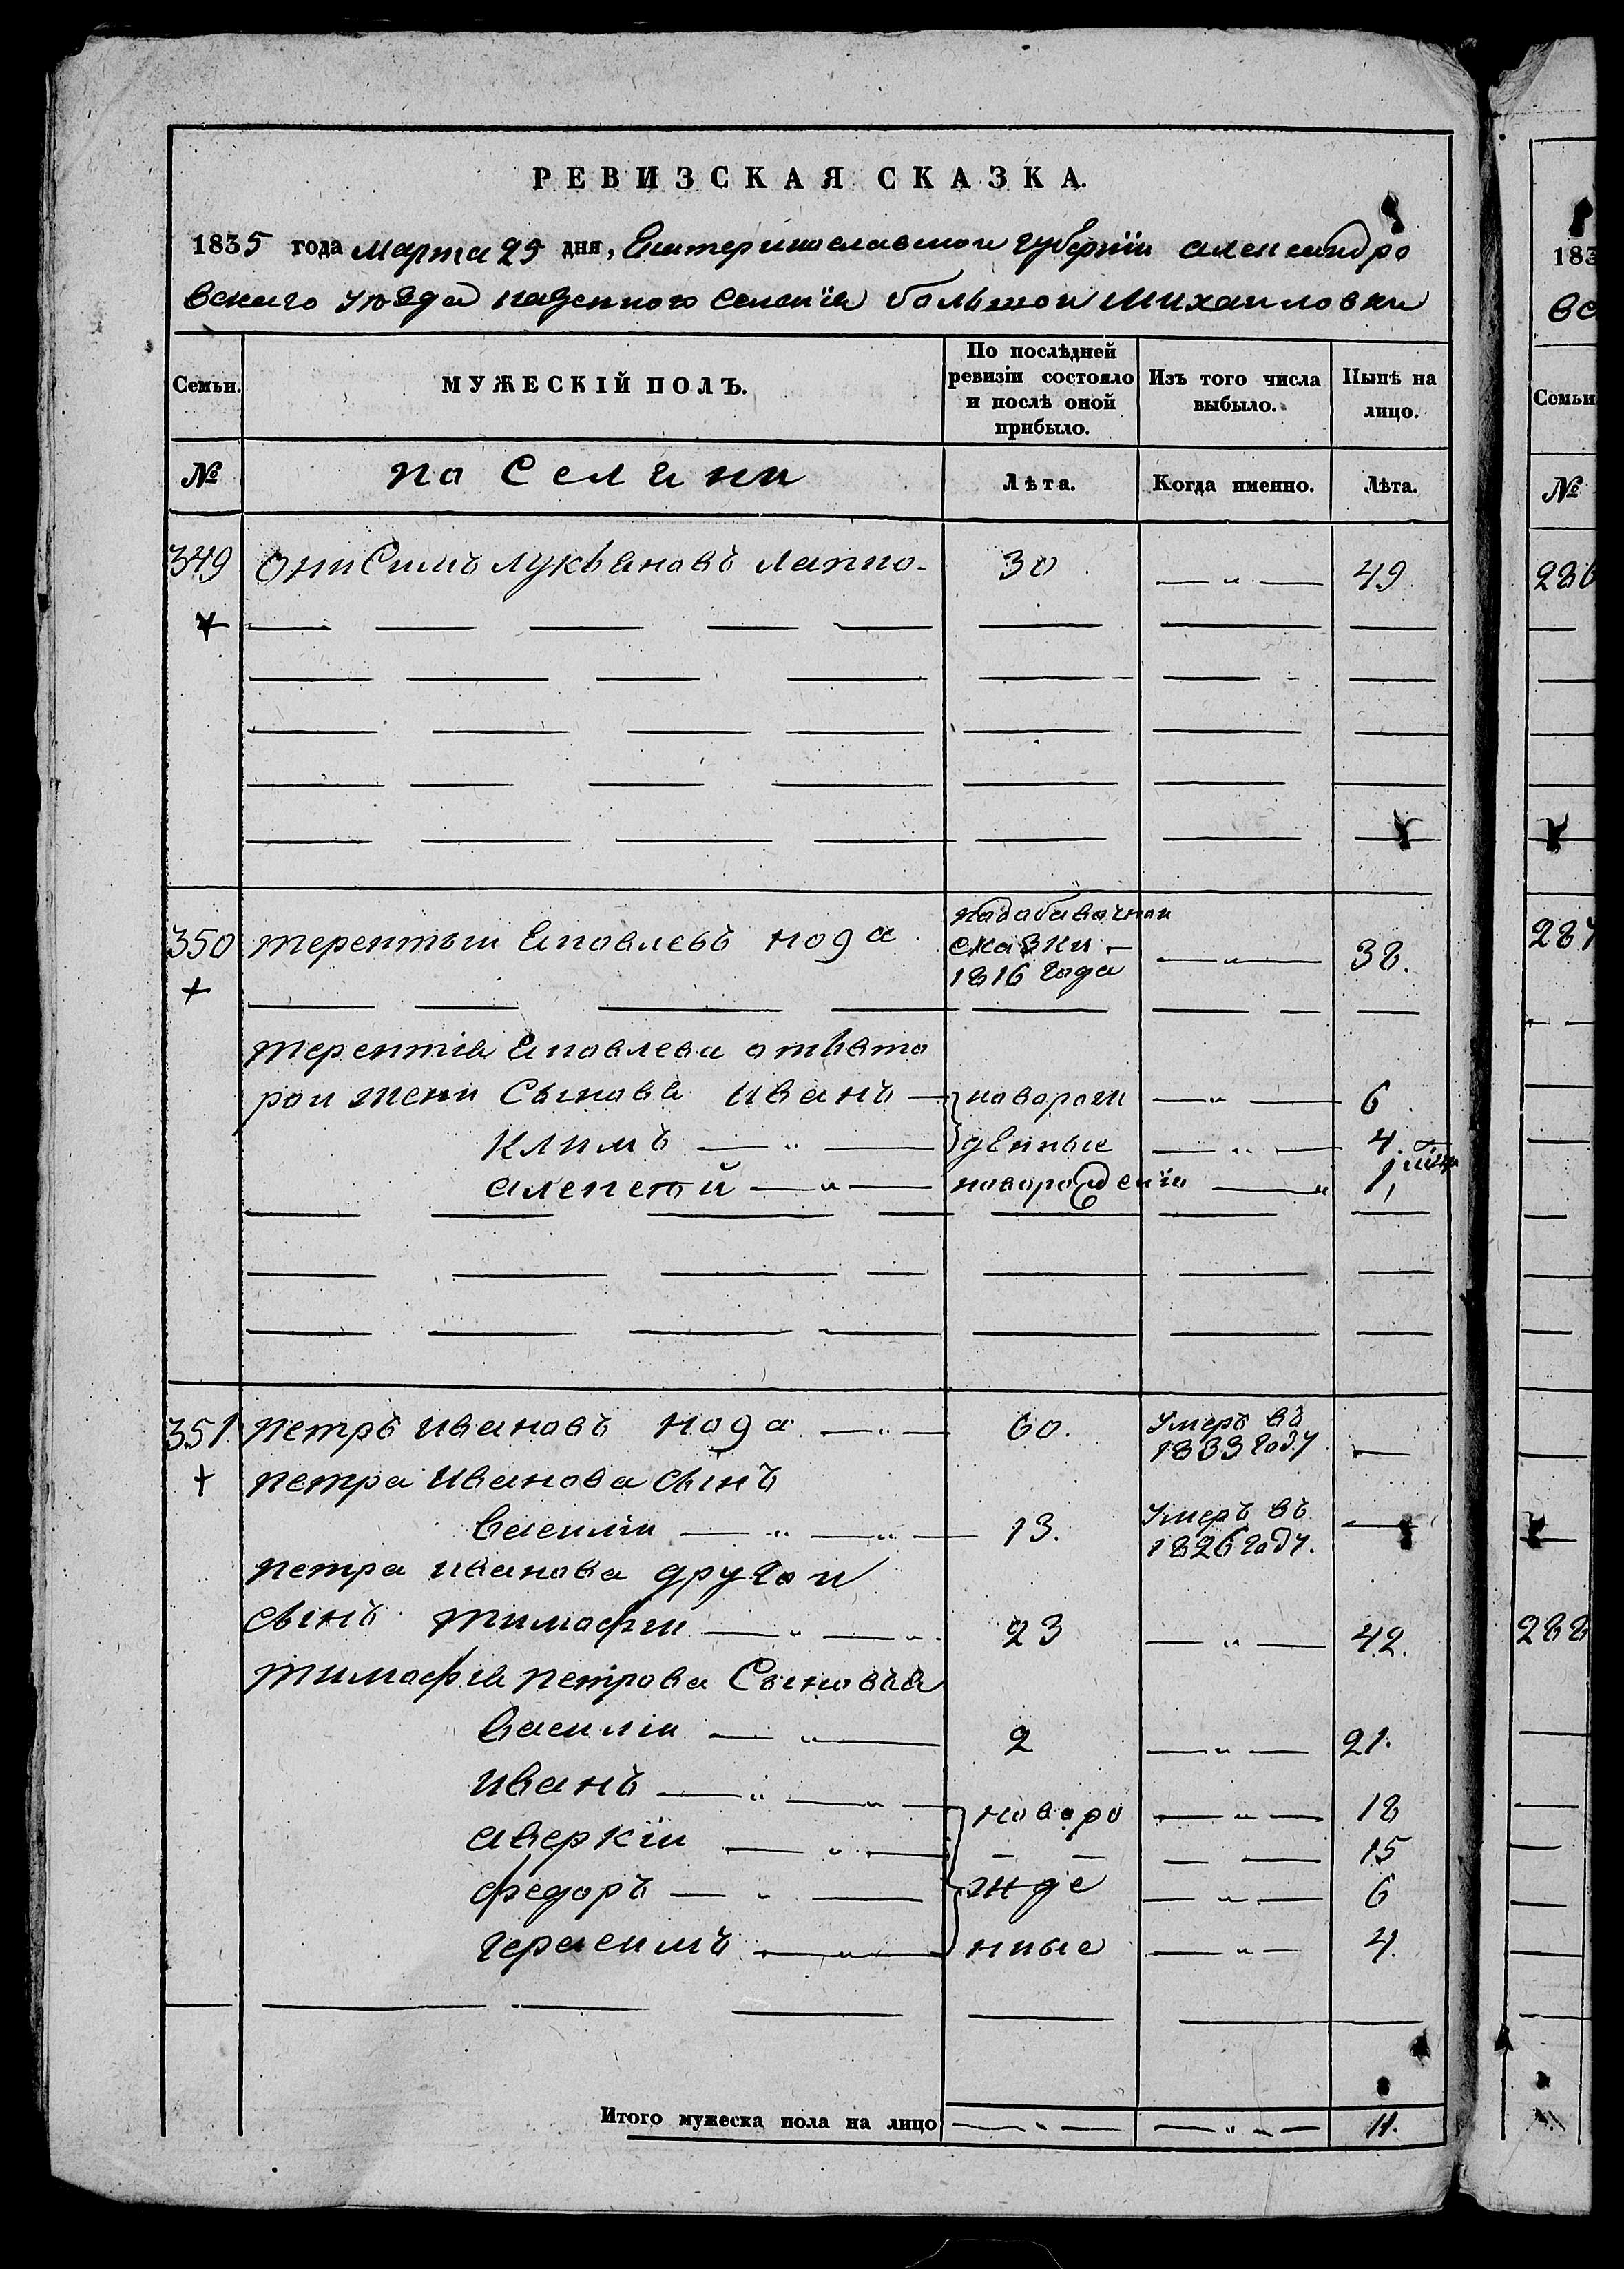 РЕВИЗСКАЯ СКАЗКА.
1835 года марта 25 дня, Екатеринославской губерніи александро
вскаго уѣзда казенного селенія большой михайловки
Семьи. МУЖЕСКІЙ ПОЛЪ. По послѣдней ревизіи состояло и послѣ оной прибыло. Изъ того числа выбыло. Нынѣ на лицо.
№ Лѣта. Когда именно. Лѣта.
349 онисимъ лукьяновъ лаппо 30 — „ — 49
350 терентий яковлевъ кода
сказки
1816 года — „ — 38.
терентія яковлева отвто
рой жени сынова иванъ — новорож — „ — 6
климъ — „ — денные — „ — 4.
алексей — „ — — „ 1
351 петръ ивановъ кода — „ — 60. умеръ въ 1833 году —
петра иванова сынъ
василій — „ — „ — 13. умеръ въ 1826 году. —
петра иванова другои
сынъ тимофии — „ — „ 23 — „ — 42.
тимофія петрова сыновья
василіи — „ — 2 — „ — 21.
иванъ — „ — „ — новоро — „ — 18
аверкіи — „ — — — — — 15
федоръ — „ — жде — „ — 6
герасимъ — „ — нные — „ — 4.
Итого мужеска пола на лицо — „ — — „ — 11.
183
вс
Семьи
№
286
287
288